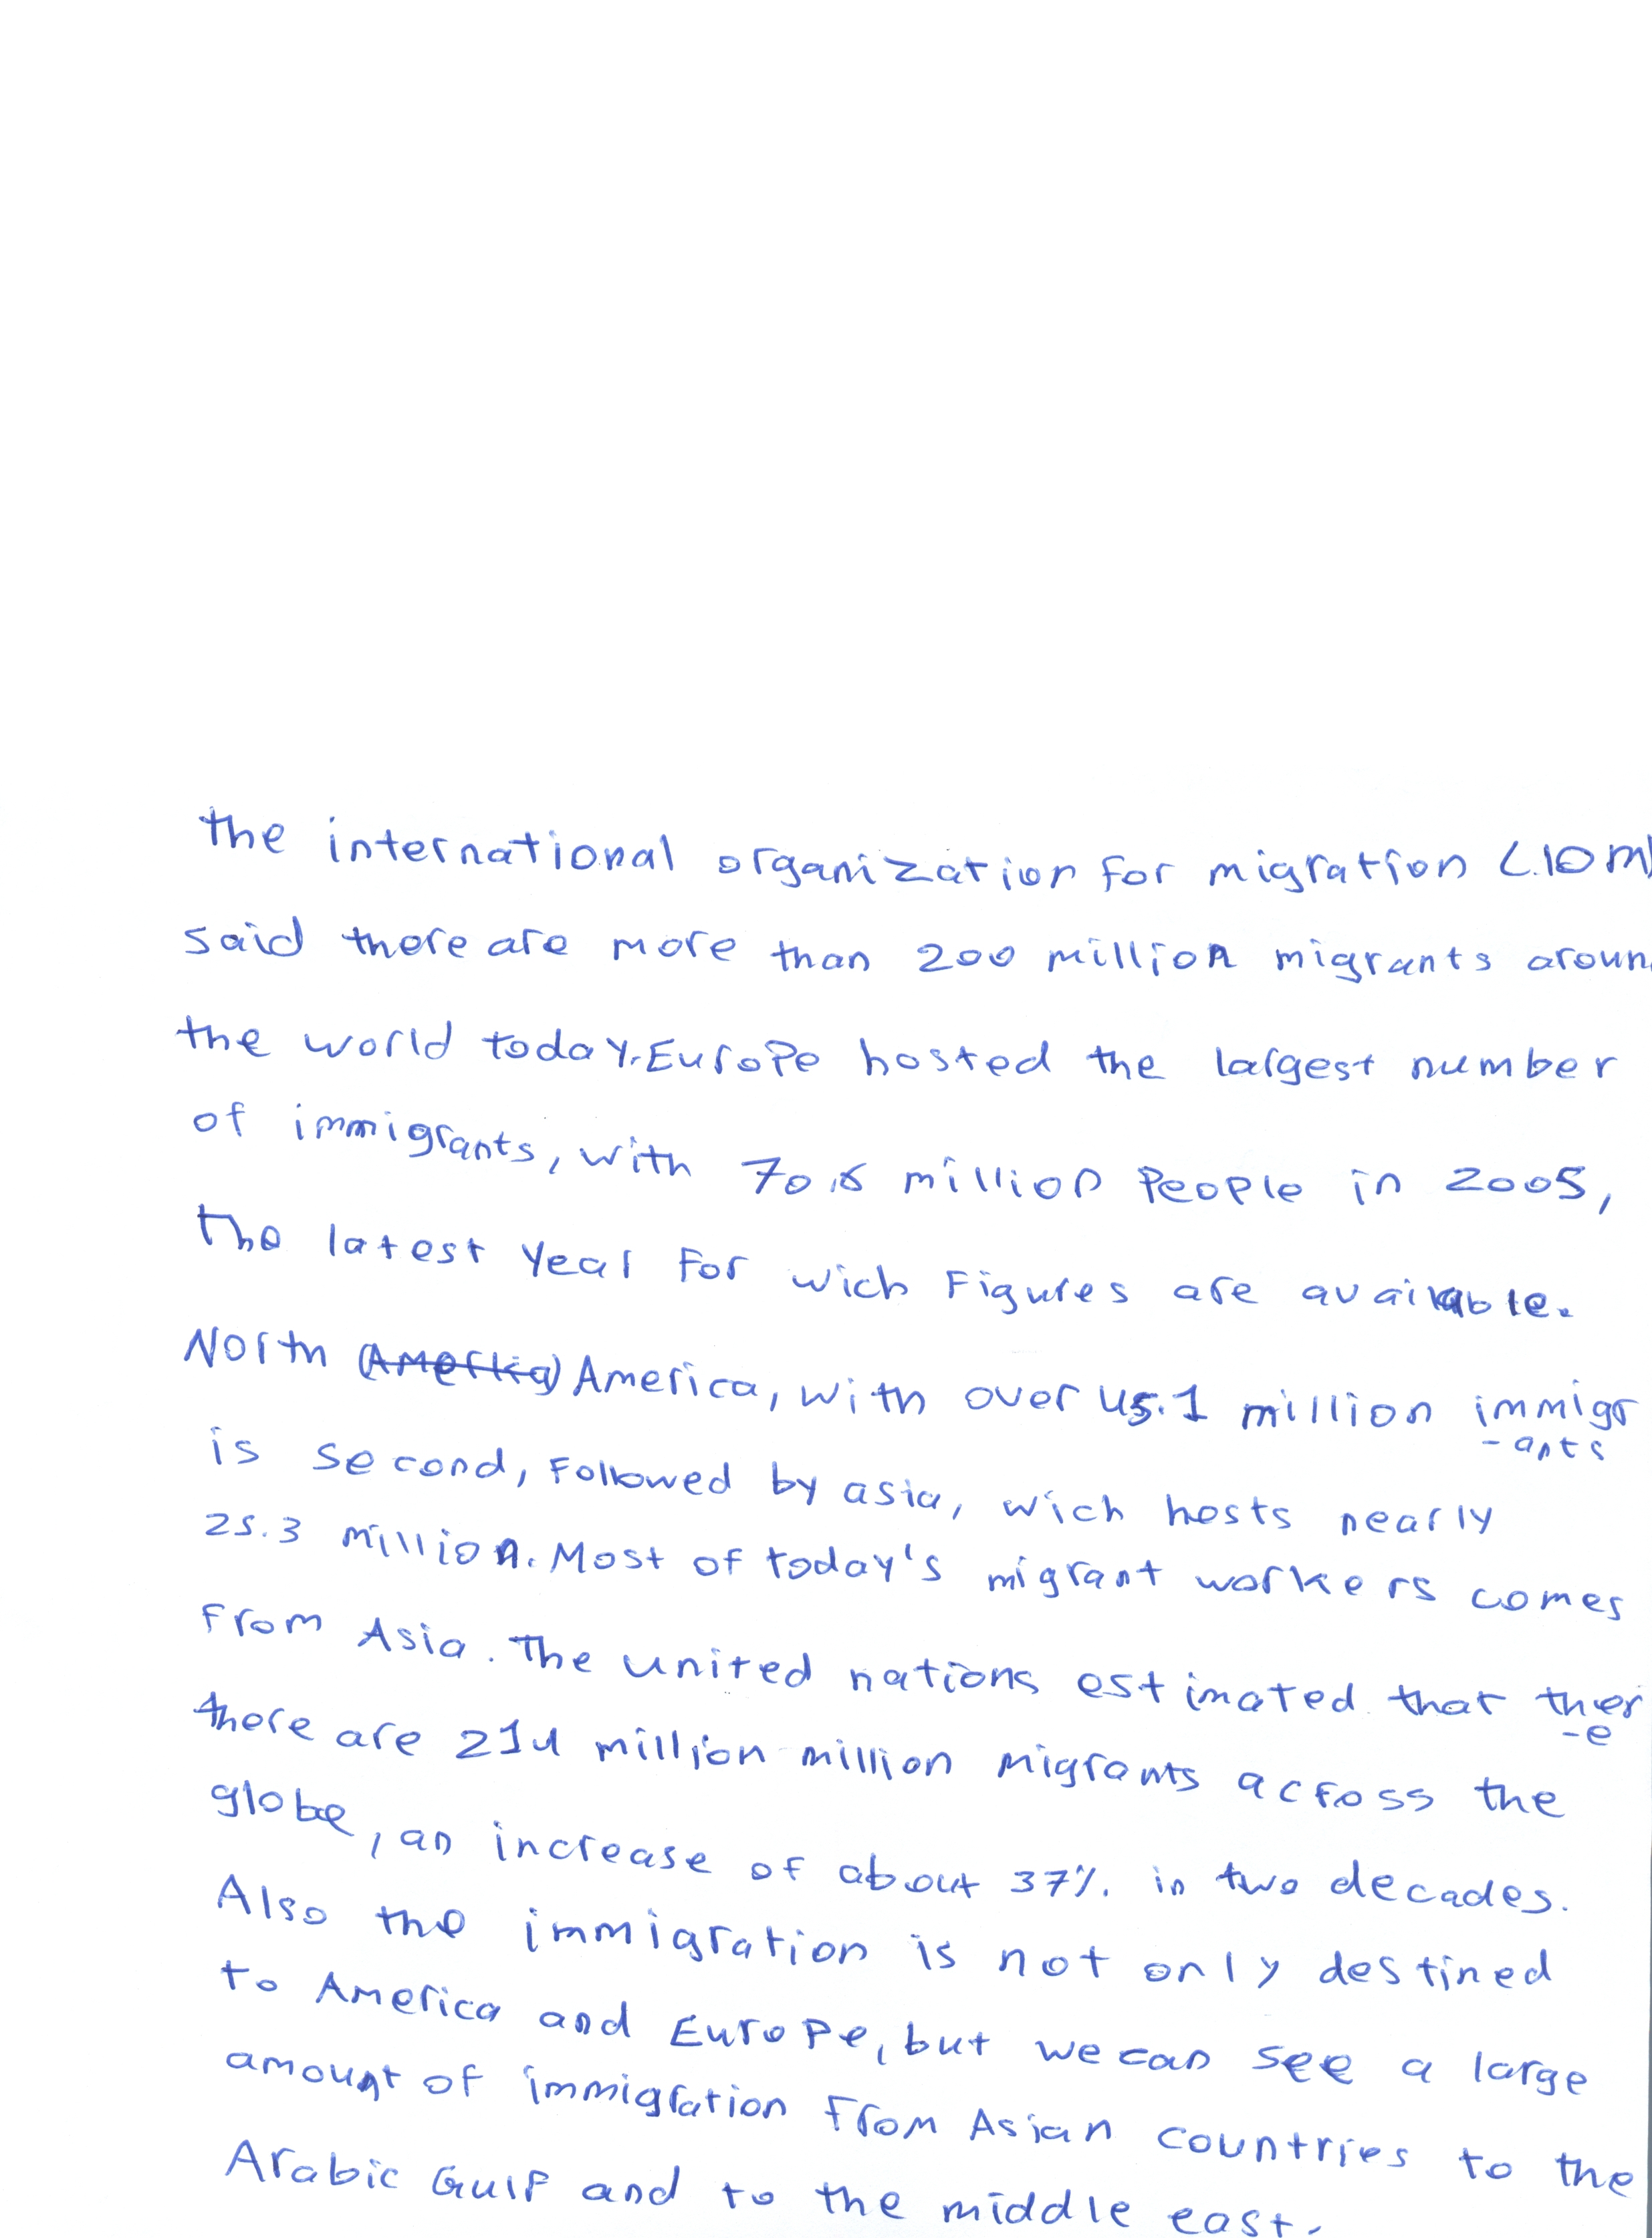 the international organization for migration (IOM)
said there are more than 200 million migrants aroun
the world today. Europe hosted the largest number
of immigrants, with 70.6 million People in 2005,
the latest year for wich Figures are available.
North (Amerika) America, with over 45.1 million immigr
-ants
is second, Followed by asia, wich hosts nearly
25.3 million. Most of today's migrant workers comes
from Asia. The united nations estimated that ther
-e
there are 214 million million migrants across the
globe, an increase of about 37% in two decades.
Also the immigration is not only destined
to America and Europe, but we can see a large
amount of immigration from Asian countries to the
Arabic Gulf and to the middle east.